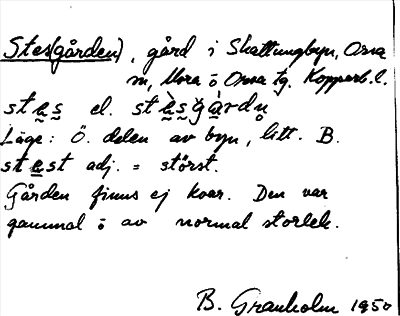 Stes(gården), gård i Skattungbyn, Orsa
sn, Mora o Orsa tg. Kopparb. l.
stes el. stèsgàrdn̥
Läge: Ö. delen av byn, litt. B.
stest adj. = störst.
Gården finns ej kvar. Den var
gammal o av normal storlek.
B. Granholm 1950